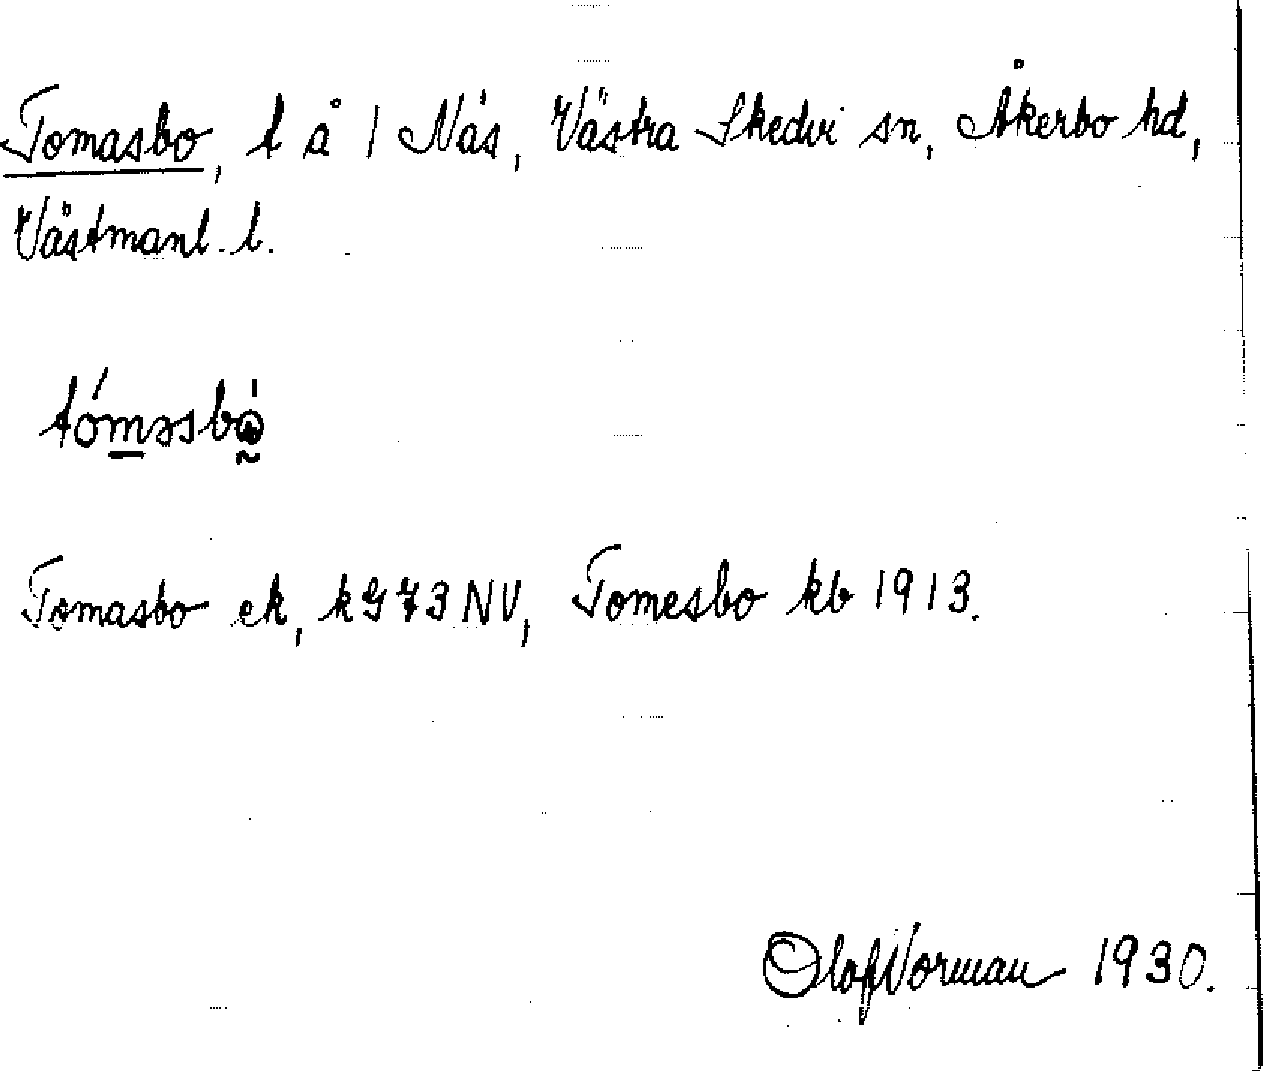 Tomasbo, t å 1 Näs, Västra Skedvi sn, Åkerbo hd,
Västmanl. l.
tómǝsbò̭
Tomasbo ek, kG73NV, Tomesbo kb 1913.
Olof Norman 1930.